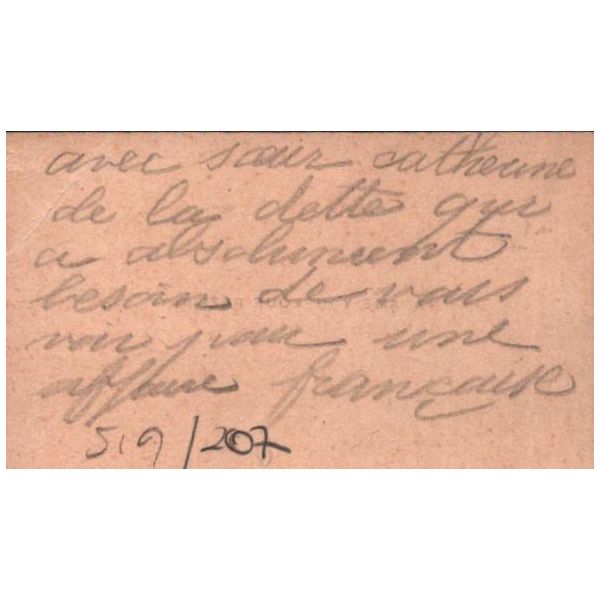 avec sœur catherine
de la dette qui
a absolument
besoin de vous
voir pour une
affaire française
519/207